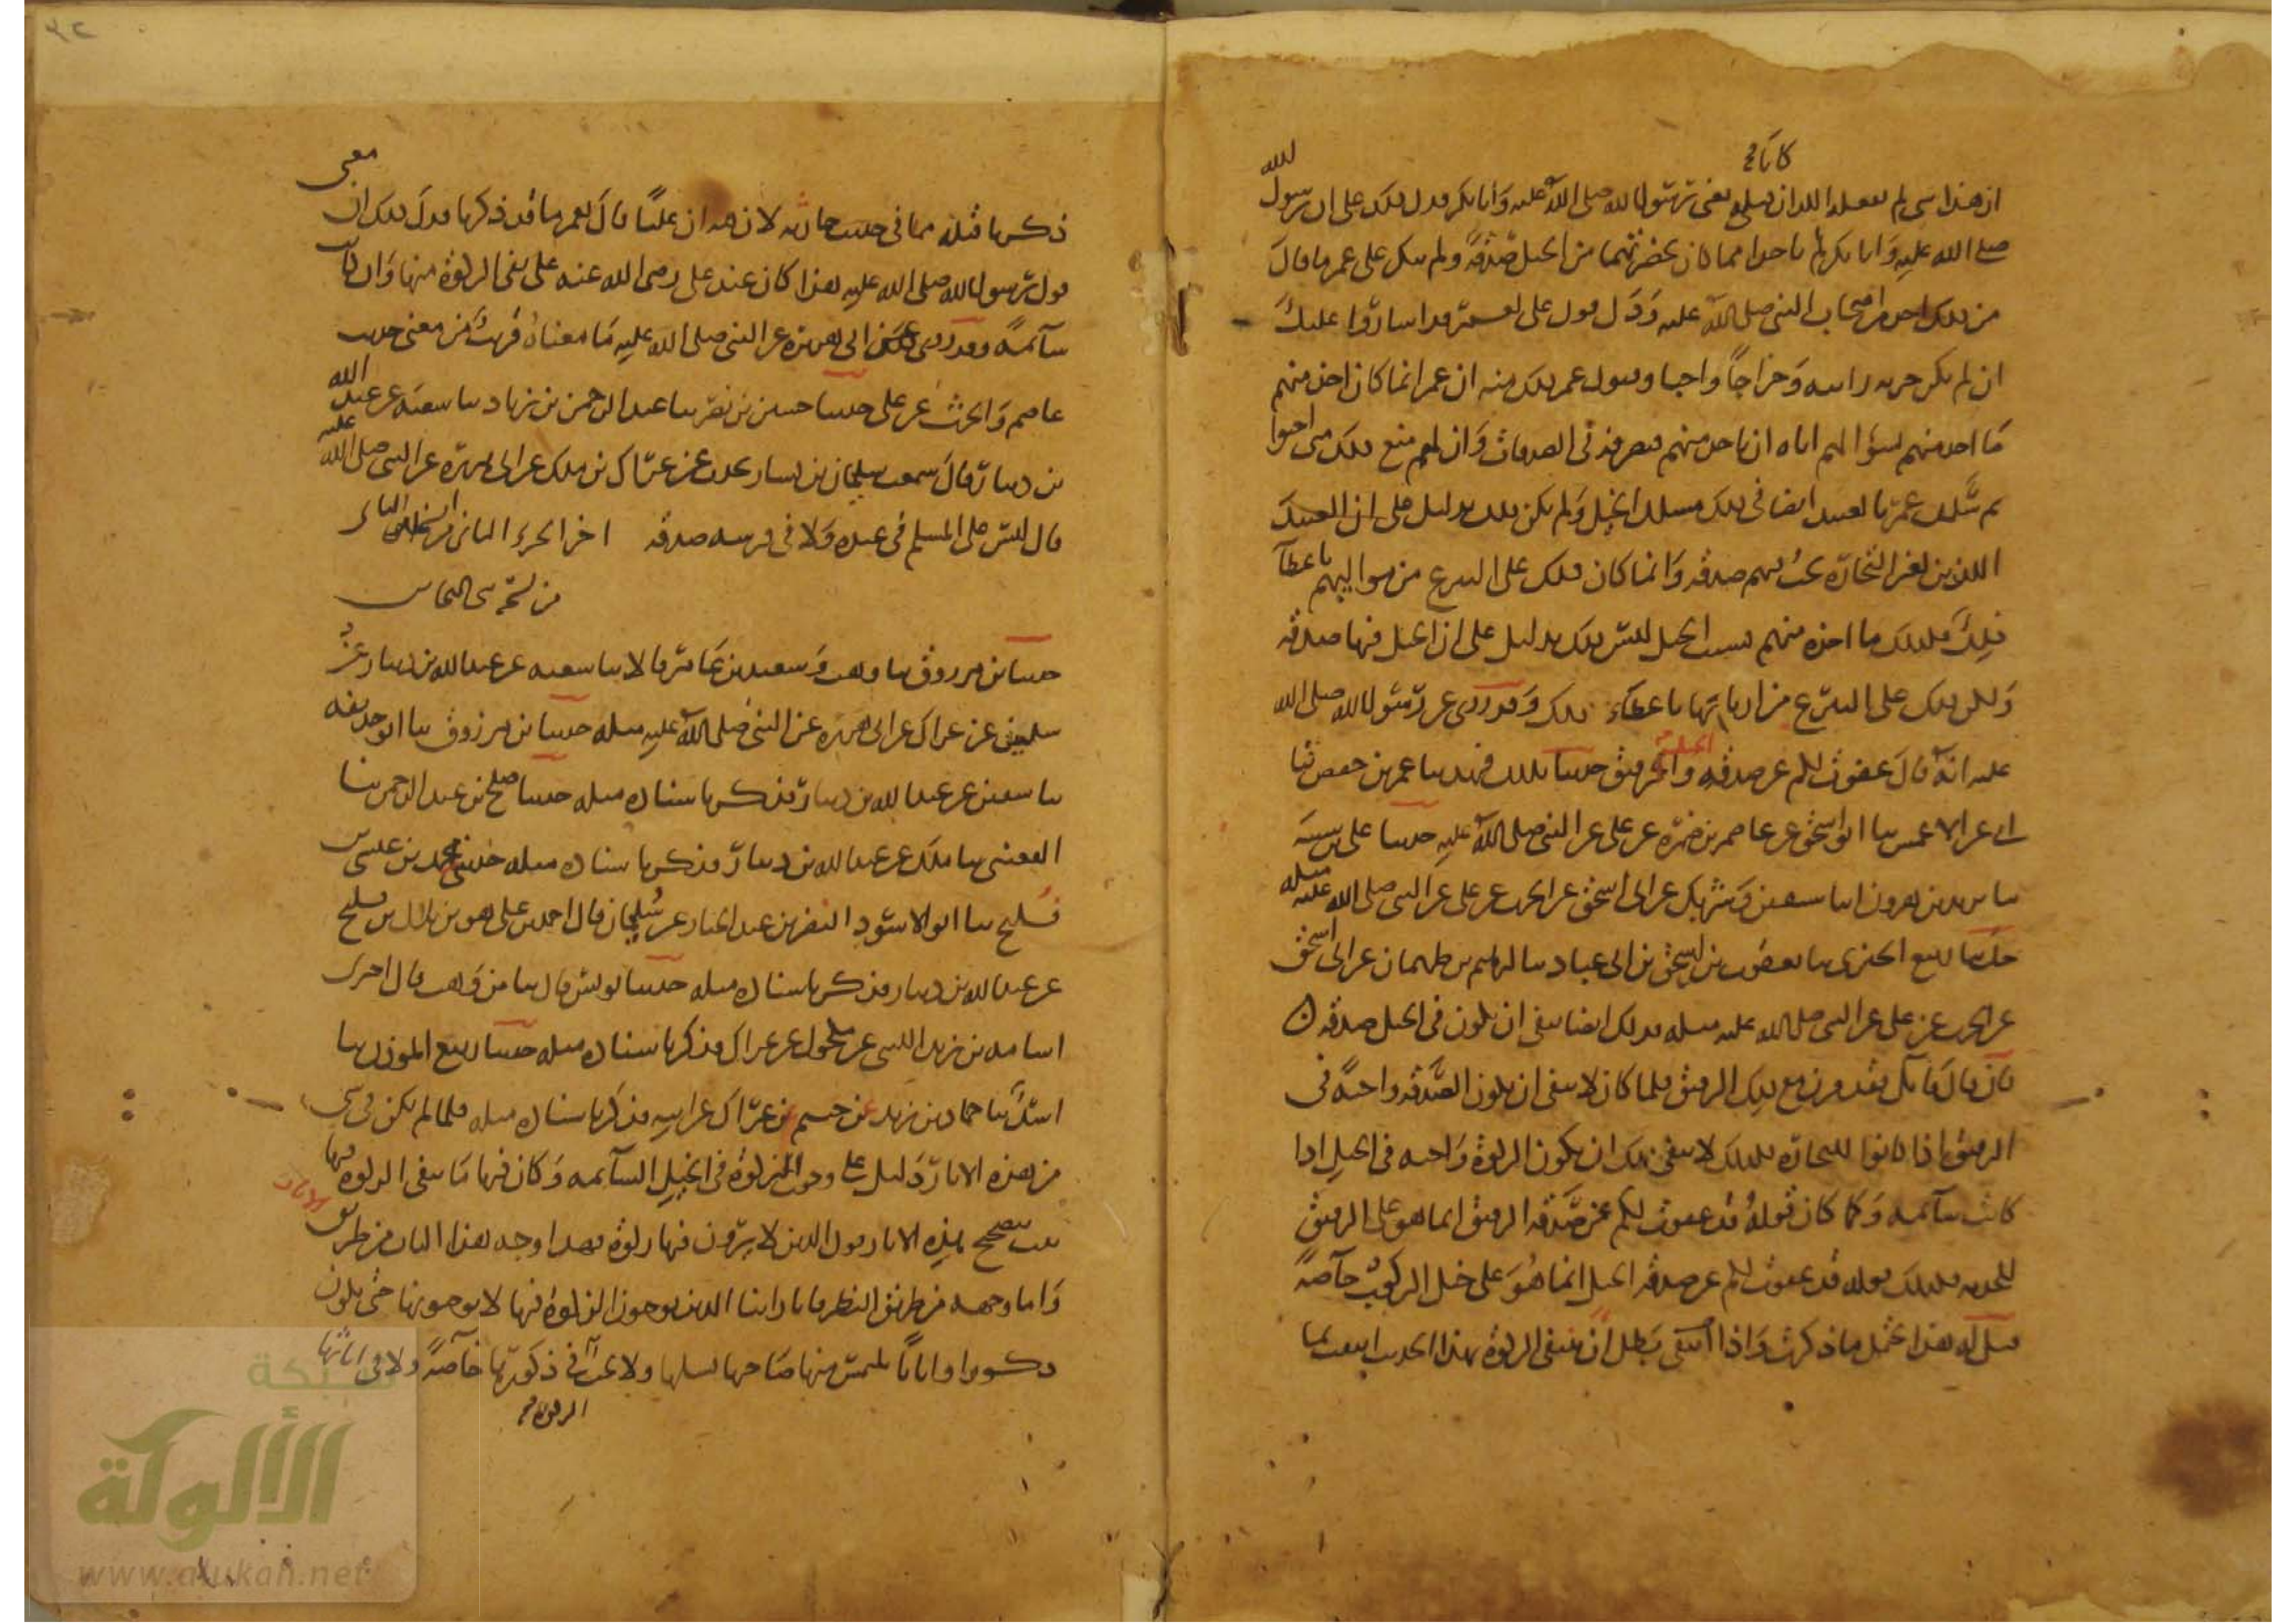 كانا
ان هذا شي لم يفعله اللذان قبلي يعني رسول الله صلى الله عليه وابا بكر فدل ذلك على ان رسول الله
صلى الله عليه وابا بكر لم ياخذا مما كان بحضرتهما من الخيل صدقة ولم ينكر على عمر ما قال
من ذلك احد من اصحاب النبي صلى الله عليه ودل قول علي لعمر قد اشاروا عليك
ان لم يكن جزية راتبة وخراجا واجبا وقبول عمر ذلك منه ان عمر انما كان اخذ منهم
ما اخذ منهم لسؤالهم اياه ان ياخذه منهم فيصرفه في الصدقات وان لهم منع ذلك متى احبوا
ثم سلك عمر بالعبيد ايضا في ذلك مسلك الخيل ولم يكن ذلك بدليل على ان العبيد
الذين لغير التجارة تجب فيهم صدقة وانما كان ذلك على التبرع من مواليهم باعطاء
ذلك فكذلك ما اخذه منهم بسبب الخيل ليس ذلك بدليل على ان الخيل فيها صدقة
ولكن ذلك على التبرع من اربابها باعطاء ذلك وقد روي عن رسول الله صلى الله
عليه انه قال عفوت لكم عن صدقة الخيل والرقيق حدثنا بذلك فهد ثنا عمر بن حفص ثنا
ابي عن الاعمش ثنا ابو اسحق عن عاصم بن ضمرة عن علي عن النبي صلى الله عليه حدثنا علي بن شيبة
ثنا يزيد بن هرون انا سفين وشريك عن ابي اسحق عن الحرث عن علي عن النبي صلى الله عليه مثله
حدثنا ربيع الجيزي ثنا يعقوب بن اسحق بن ابي عباد ثنا ابرهيم بن طهمان عن ابي اسحق
عن الحرث عن علي عن النبي صلى الله عليه مثله فذلك ايضا ينفي ان يكون في الخيل صدقة
فان قال قائل فقد قرن مع ذلك الرقيق فلما كان لا ينفي ان يكون الصدقة واجبة في
الرقيق اذا كانوا للتجارة فكذلك لا ينفي ذلك ان يكون الزكوة واجبة في الخيل اذا
كانت سائمة وكما كان قوله قد عفوت لكم عن صدقة الرقيق انما هو على الرقيق
للخدمة فكذلك قوله قد عفوت لكم عن صدقة الخيل انما هو على خيل الركوب خاصة
قيل له هذا يحتمل ما ذكرت واذا انتفى بطل ان ينتفي الزكوة بهذا الحديث انتفت بما
ذكرنا قبله مما في حديث حارثة لان فيه ان عليا قال لعمر ما قد ذكرنا فدل ذلك ان معنى
قول رسول الله صلى الله عليه هذا كان عند علي رضي الله عنه على نفي الزكوة منها وان كانت
سائمة وقد روي عن ابي هريرة عن النبي صلى الله عليه ما معناه قريب من معنى حديث
عاصم والحرث عن علي حدثنا حسين بن نصر ثنا عبد الرحمن بن زياد ثنا شعبة عن عبد الله
بن دينار قال سمعت سليمان بن يسار يحدث عن عراك بن ملك عن ابي هريرة عن النبي صلى الله عليه
قال ليس على المسلم في عبده ولا في فرسه صدقة اخر الجزء الثاني
من نسخة ابن النحاس
حدثنا ابن مرزوق ثنا وهب وسعيد بن عامر قالا ثنا شعبة عن عبد الله بن دينار عن
سليمن عن عراك عن ابي هريرة عن النبي صلى الله عليه مثله حدثنا ابن مرزوق ثنا ابو حذيفة
ثنا سفين عن عبد الله بن دينار فذكر باسناده مثله حدثنا صلح بن عبد الرحمن ثنا
القعنبي ثنا ملك عن عبد الله بن دينار فذكر باسناده مثله حدثني محمد بن عيسى بن
فليح ثنا ابو الاسود النضر بن عبد الجبار عن سليمان قال احمد بن علي هو بن بلال بن فليح
عن عبد الله بن دينار فذكر باسناده مثله حدثنا يونس قال ثنا بن وهب قال اخبرني
اسامة بن زيد الليثي عن مكحول عن عراك فذكر باسناده مثله حدثنا ربيع المؤذن ثنا
اسد ثنا حماد بن زيد عن خثيم بن عراك عن ابيه فذكر باسناده مثله فلما لم يكن في شي
من هذه الاثار دليل على وجوب الزكوة في الخيل السائمة وكان فيها ما ينفي الزكوة منها
ثبت بتصحيح هذه الاثار قول الذين لا يرون فيها زكوة فهذا وجه هذا الباب من طريق الاثار
واما وجهه من طريق النظر فانا راينا الذين يوجبون الزكوة فيها لا يوجبونها حتى يكون
ذكورا واناثا يلتمس منها صاحبها نسلها ولا تجب في ذكورها خاصة ولا في اناثها
الزكوة
شبكة
الألوكة
www.alukah.net